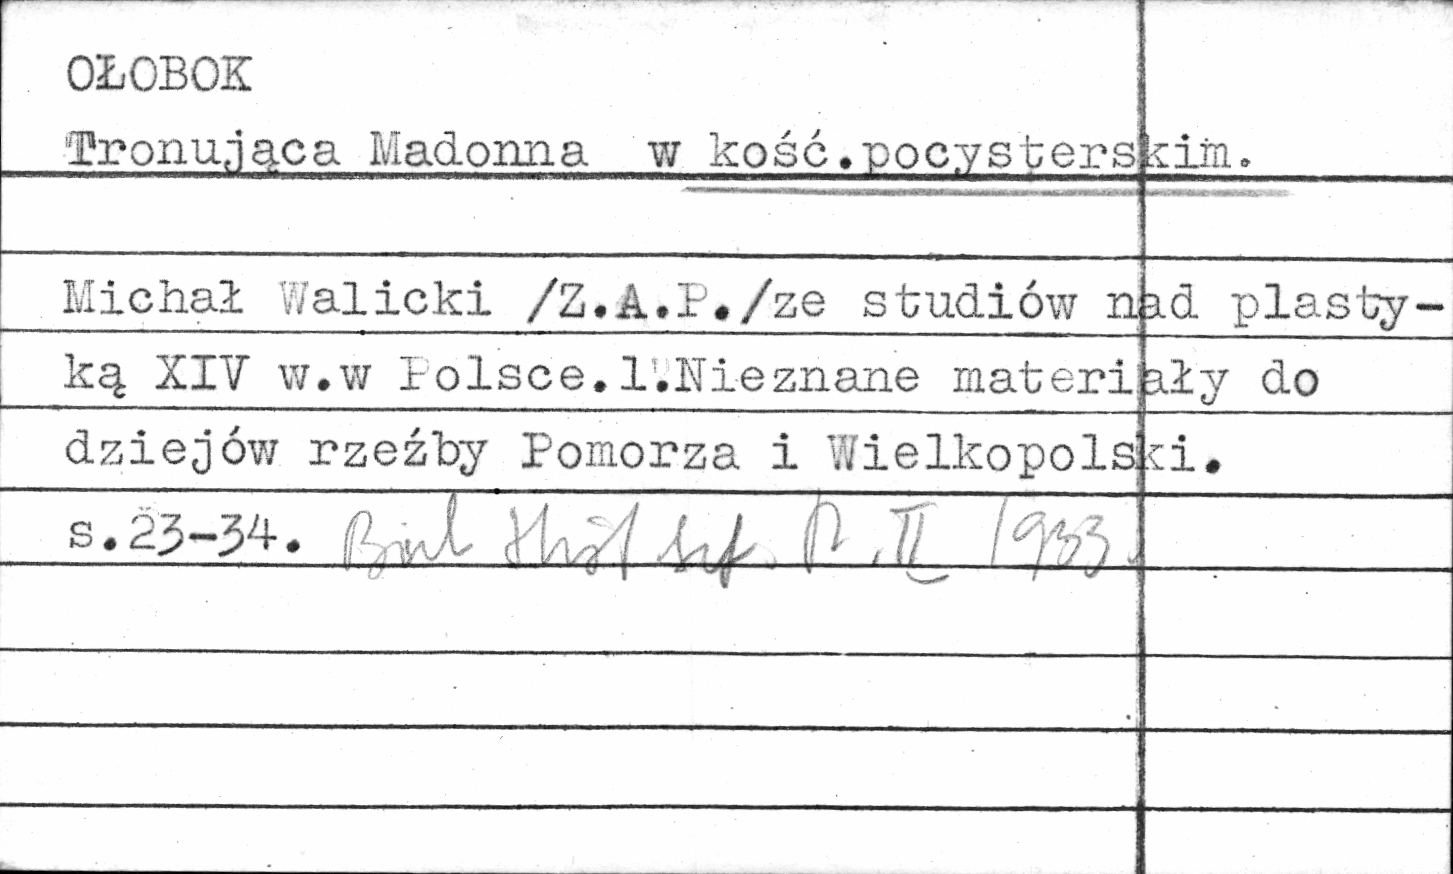 OŁOBOK
Tronująca Madonna w kość.pocysterskim.
Michał Walicki /Z.A.P./ze studiów nad plasty-
ką XIV w.w Polsce.1.Nieznane materiały do
dziejów rzeźby Pomorza i Wielkopolski.
s.23-34. Biul Hist szt. R. II 1933.